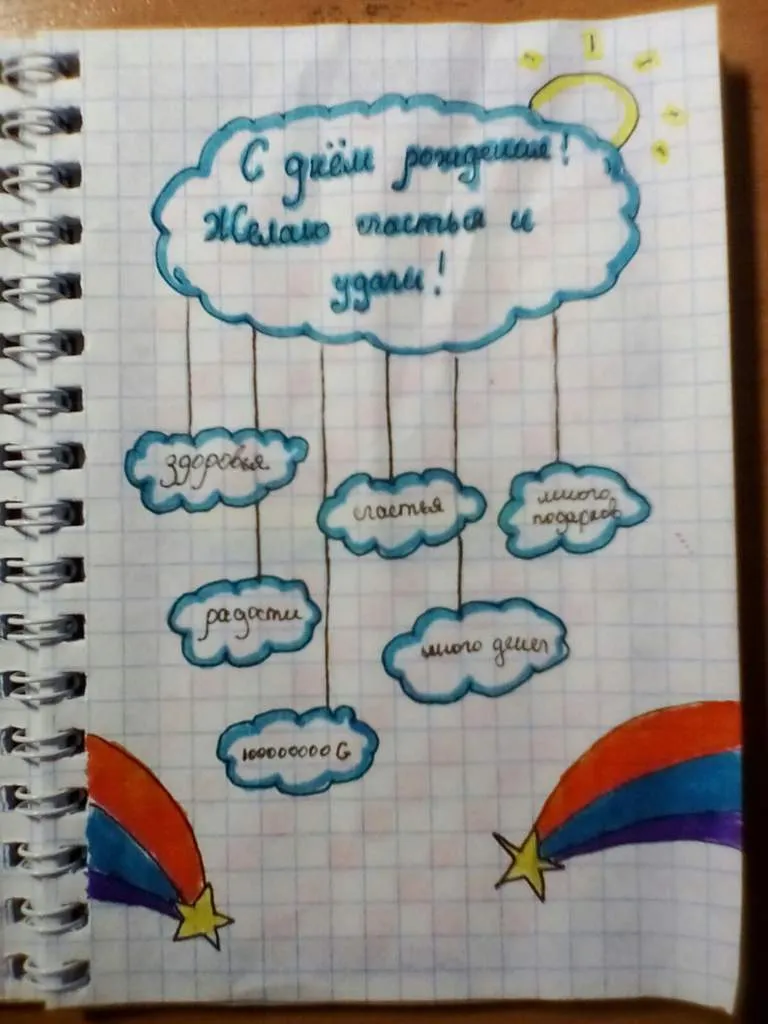 С днём рождения!
Желаю счастья и
удачи!
здоровья
счастья
много
подарков
радости
много денег
100000000 G